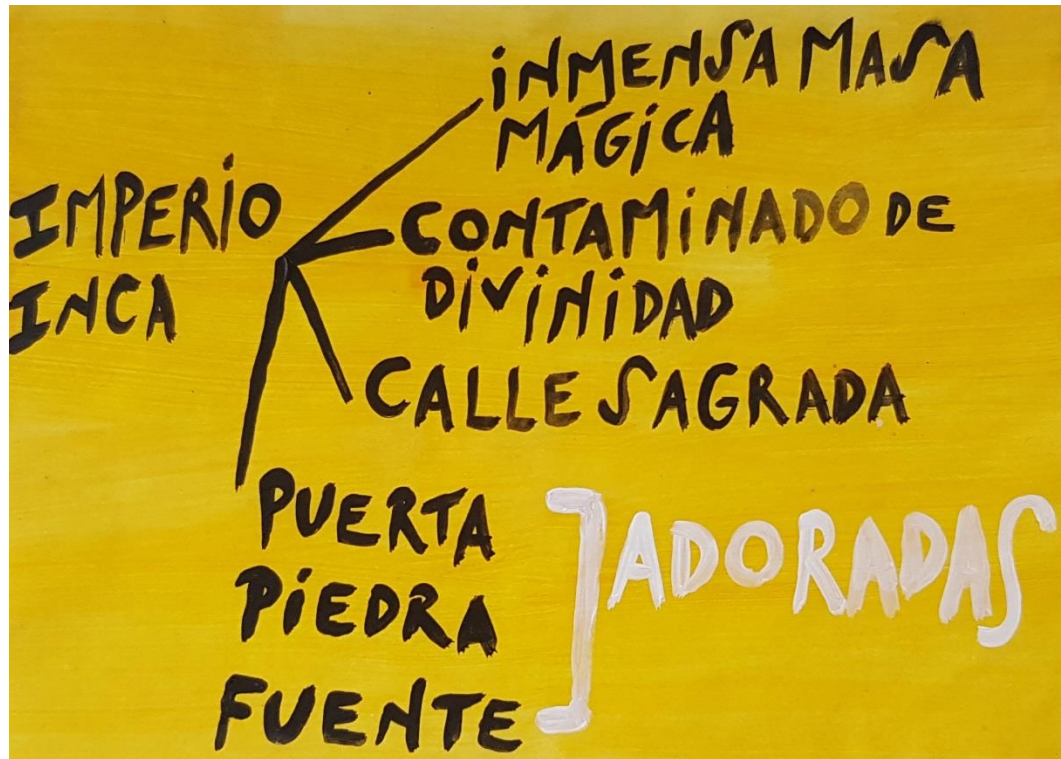 IMPERIO
INCA
INMENSA MASA
MÁGICA
CONTAMINADO DE
DIVINIDAD
CALLE SAGRADA
PUERTA
PIEDRA
FUENTE
ADORADAS